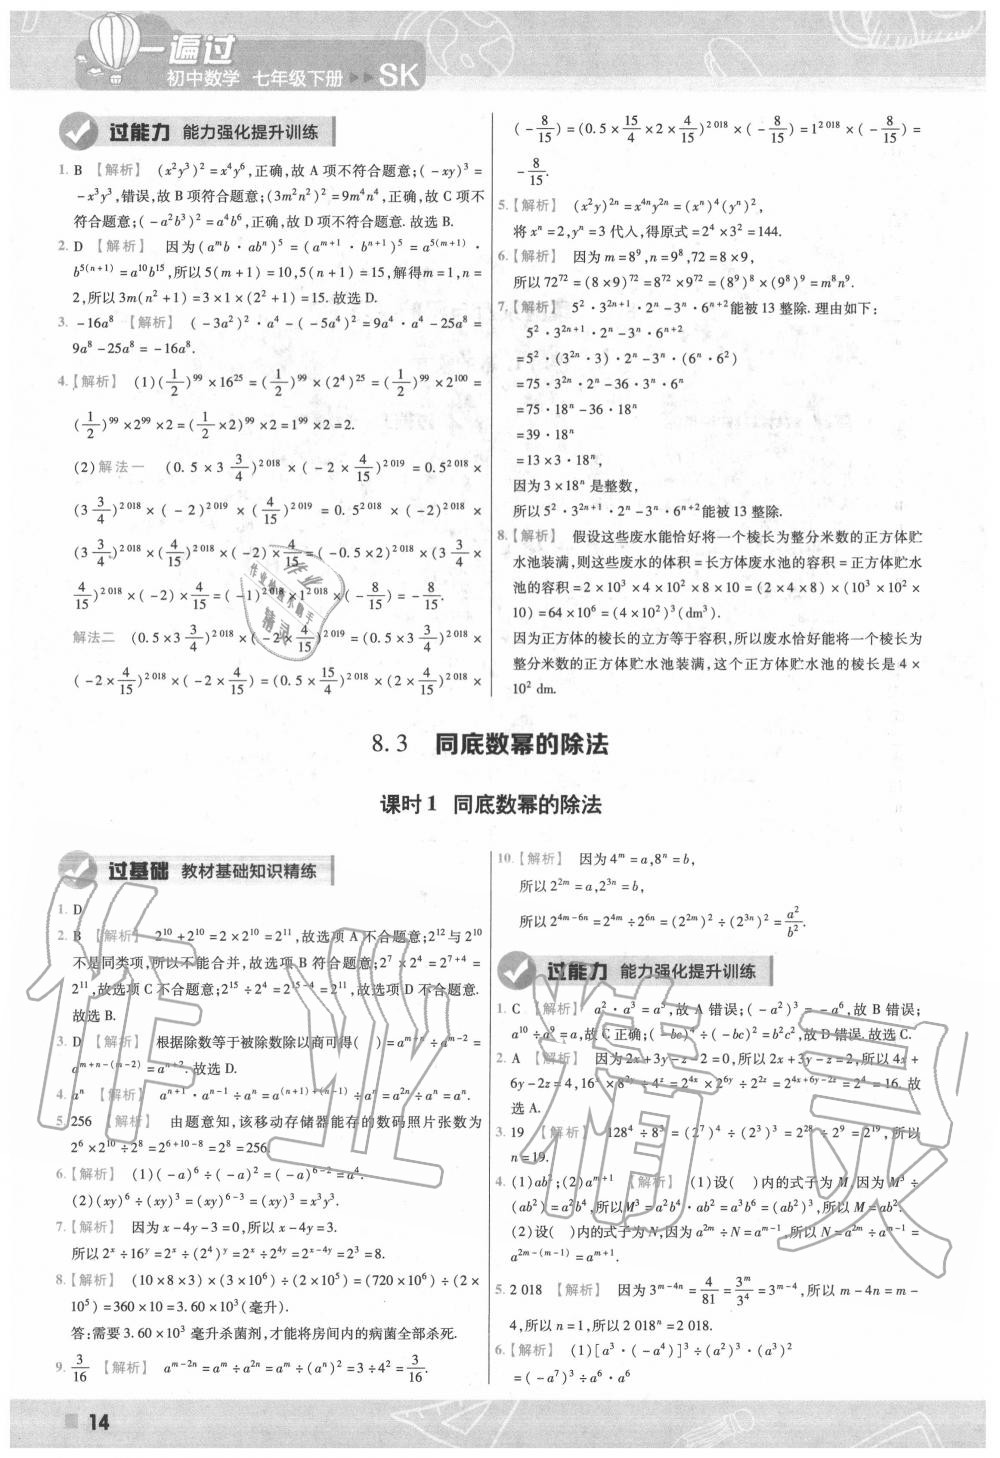 一遍过
初中数学 七年级下册 ▶▶ SK
过能力 能力强化提升训练
1. B 【解析】 (x²y³)² = x⁴y⁶,正确,故 A 项不符合题意;( - xy)³ =
- x³y³,错误,故 B 项符合题意;(3m²n²)² = 9m⁴n⁴,正确,故 C 项不
符合题意;( - a²b³)² = a⁴b⁶,正确,故 D 项不符合题意. 故选 B.
2. D 【解析】 因为(aᵐb · abⁿ)⁵ = (aᵐ⁺¹ · bⁿ⁺¹)⁵ = a⁵⁽ᵐ⁺¹⁾ ·
b⁵⁽ⁿ⁺¹⁾ = a¹⁰b¹⁵,所以 5(m + 1) = 10,5(n + 1) = 15,解得 m = 1,n =
2,所以 3m(n² + 1) = 3 × 1 × (2² + 1) = 15. 故选 D.
3. -16a⁸ 【解析】 ( - 3a²)² · a⁴ - ( - 5a⁴)² = 9a⁴ · a⁴ - 25a⁸ =
9a⁸ - 25a⁸ = - 16a⁸.
4. 【解析】 (1)(1/2)⁹⁹ × 16²⁵ = (1/2)⁹⁹ × (2⁴)²⁵ = (1/2)⁹⁹ × 2¹⁰⁰ =
(1/2)⁹⁹ × 2⁹⁹ × 2 = (1/2 × 2)⁹⁹ × 2 = 1⁹⁹ × 2 = 2.
(2)解法一 (0.5 × 3 3/4)²⁰¹⁸ × ( - 2 × 4/15)²⁰¹⁹ = 0.5²⁰¹⁸ ×
(3 3/4)²⁰¹⁸ × ( - 2)²⁰¹⁹ × (4/15)²⁰¹⁹ = 0.5²⁰¹⁸ × ( - 2)²⁰¹⁸ ×
(3 3/4)²⁰¹⁸ × (4/15)²⁰¹⁸ × ( - 2) × 4/15 = ( - 0.5 × 2)²⁰¹⁸ × (3 3/4 ×
4/15)²⁰¹⁸ × ( - 2) × 4/15 = ( - 1)²⁰¹⁸ × 1²⁰¹⁸ × ( - 8/15) = - 8/15.
解法二 (0.5 × 3 3/4)²⁰¹⁸ × ( - 2 × 4/15)²⁰¹⁹ = (0.5 × 3 3/4)²⁰¹⁸ ×
( - 2 × 4/15)²⁰¹⁸ × ( - 2 × 4/15) = (0.5 × 15/4)²⁰¹⁸ × (2 × 4/15)²⁰¹⁸ ×
( - 8/15) = (0.5 × 15/4 × 2 × 4/15)²⁰¹⁸ × ( - 8/15) = 1²⁰¹⁸ × ( - 8/15) =
- 8/15.
5. 【解析】 (x²y)²ⁿ = x⁴ⁿy²ⁿ = (xⁿ)⁴(yⁿ)²,
将 xⁿ = 2,yⁿ = 3 代入,得原式 = 2⁴ × 3² = 144.
6. 【解析】 因为 m = 8⁹,n = 9⁸,72 = 8 × 9,
所以 72⁷² = (8 × 9)⁷² = 8⁷² × 9⁷² = (8⁹)⁸ × (9⁸)⁹ = m⁸n⁹.
7. 【解析】 5² · 3²ⁿ⁺¹ · 2ⁿ - 3ⁿ · 6ⁿ⁺²能被 13 整除. 理由如下:
5² · 3²ⁿ⁺¹ · 2ⁿ - 3ⁿ · 6ⁿ⁺²
= 5² · (3²ⁿ · 3) · 2ⁿ - 3ⁿ · (6ⁿ · 6²)
= 75 · 3²ⁿ · 2ⁿ - 36 · 3ⁿ · 6ⁿ
= 75 · 18ⁿ - 36 · 18ⁿ
= 39 · 18ⁿ
= 13 × 3 · 18ⁿ,
因为 3 × 18ⁿ 是整数,
所以 5² · 3²ⁿ⁺¹ · 2ⁿ - 3ⁿ · 6ⁿ⁺²能被 13 整除.
8. 【解析】 假设这些废水能恰好将一个棱长为整分米数的正方体贮
水池装满,则这些废水的体积 = 长方体废水池的容积 = 正方体贮水
池的容积 = 2 × 10³ × 4 × 10² × 8 × 10 = (2 × 4 × 8) × (10³ × 10² ×
10) = 64 × 10⁶ = (4 × 10²)³(dm³).
因为正方体的棱长的立方等于容积,所以废水恰好能将一个棱长为
整分米数的正方体贮水池装满,这个正方体贮水池的棱长是 4 ×
10² dm.
8.3 同底数幂的除法
课时 1 同底数幂的除法
过基础 教材基础知识精练
1. D
2. B 【解析】 2¹⁰ + 2¹⁰ = 2 × 2¹⁰ = 2¹¹,故选项 A 不合题意;2¹²与 2¹⁰
不是同类项,所以不能合并,故选项 B 符合题意;2⁷ × 2⁴ = 2⁷⁺⁴ =
2¹¹,故选项 C 不合题意;2¹⁵ ÷ 2⁴ = 2¹⁵⁻⁴ = 2¹¹,故选项 D 不合题意.
故选 B.
3. D 【解析】 根据除数等于被除数除以商可得( ) = aᵐ⁺ⁿ ÷ aᵐ⁻² =
aᵐ⁺ⁿ⁻⁽ᵐ⁻²⁾ = aⁿ⁺². 故选 D.
4. aⁿ 【解析】 aⁿ⁺¹ · aⁿ⁻¹ ÷ aⁿ = a⁽ⁿ⁺¹⁾⁺⁽ⁿ⁻¹⁾ ÷ aⁿ = a²ⁿ ÷ aⁿ = aⁿ.
5. 256 【解析】 由题意知,该移动存储器能存的数码照片张数为
2⁶ × 2¹⁰ ÷ 2⁸ = 2⁶⁺¹⁰⁻⁸ = 2⁸ = 256.
6. 【解析】 (1)( - a)⁶ ÷ ( - a)² = ( - a)⁶⁻² = a⁴.
(2)(xy)⁶ ÷ (xy)³ = (xy)⁶⁻³ = (xy)³ = x³y³.
7. 【解析】 因为 x - 4y - 3 = 0,所以 x - 4y = 3.
所以 2ˣ ÷ 16ʸ = 2ˣ ÷ (2⁴)ʸ = 2ˣ ÷ 2⁴ʸ = 2ˣ⁻⁴ʸ = 2³ = 8.
8. 【解析】 (10 × 8 × 3) × (3 × 10⁶) ÷ (2 × 10⁵) = (720 × 10⁶) ÷ (2 ×
10⁵) = 360 × 10 = 3.60 × 10³(毫升).
答:需要 3.60 × 10³ 毫升杀菌剂,才能将房间内的病菌全部杀死.
9. 3/16 【解析】 aᵐ⁻²ⁿ = aᵐ ÷ a²ⁿ = aᵐ ÷ (aⁿ)² = 3 ÷ 4² = 3/16.
10. 【解析】 因为 4ᵐ = a,8ⁿ = b,
所以 2²ᵐ = a,2³ⁿ = b,
所以 2⁴ᵐ⁻⁶ⁿ = 2⁴ᵐ ÷ 2⁶ⁿ = (2²ᵐ)² ÷ (2³ⁿ)² = a²/b².
过能力 能力强化提升训练
1. C 【解析】 a² · a³ = a⁵,故 A 错误;( - a²)³ = - a⁶,故 B 错误;
a¹⁰ ÷ a⁹ = a,故 C 正确;( - bc)⁴ ÷ ( - bc)² = b²c²,故 D 错误. 故选 C.
2. A 【解析】 因为 2x + 3y - z - 2 = 0,所以 2x + 3y - z = 2,所以 4x +
6y - 2z = 4,16ˣ × 8²ʸ ÷ 4ᶻ = 2⁴ˣ × 2⁶ʸ ÷ 2²ᶻ = 2⁴ˣ⁺⁶ʸ⁻²ᶻ = 2⁴ = 16. 故
选 A.
3. 19 【解析】 128⁴ ÷ 8³ = (2⁷)⁴ ÷ (2³)³ = 2²⁸ ÷ 2⁹ = 2¹⁹,所以
n = 19.
4. (1)ab²;(2)aᵐ⁺¹ 【解析】 (1)设( )内的式子为 M,因为 M³ ÷
(ab²) = a²b⁴,所以 M³ = a²b⁴ · ab² = a³b⁶ = (ab²)³,所以 M = ab².
(2)设( )内的式子为 N,因为 a²ᵐ ÷ N = aᵐ⁻¹,所以 N = a²ᵐ ÷ aᵐ⁻¹ =
a²ᵐ⁻⁽ᵐ⁻¹⁾ = aᵐ⁺¹.
5. 2 018 【解析】 因为 3ᵐ⁻⁴ⁿ = 4/81 = 3ᵐ/3⁴ = 3ᵐ⁻⁴,所以 m - 4n = m -
4,所以 n = 1,所以 2 018ⁿ = 2 018.
6. 【解析】 (1)[a³ · ( - a⁴)]³ ÷ (a²)³ · (a³)²
= ( - a⁷)³ ÷ a⁶ · a⁶
14
作业精灵